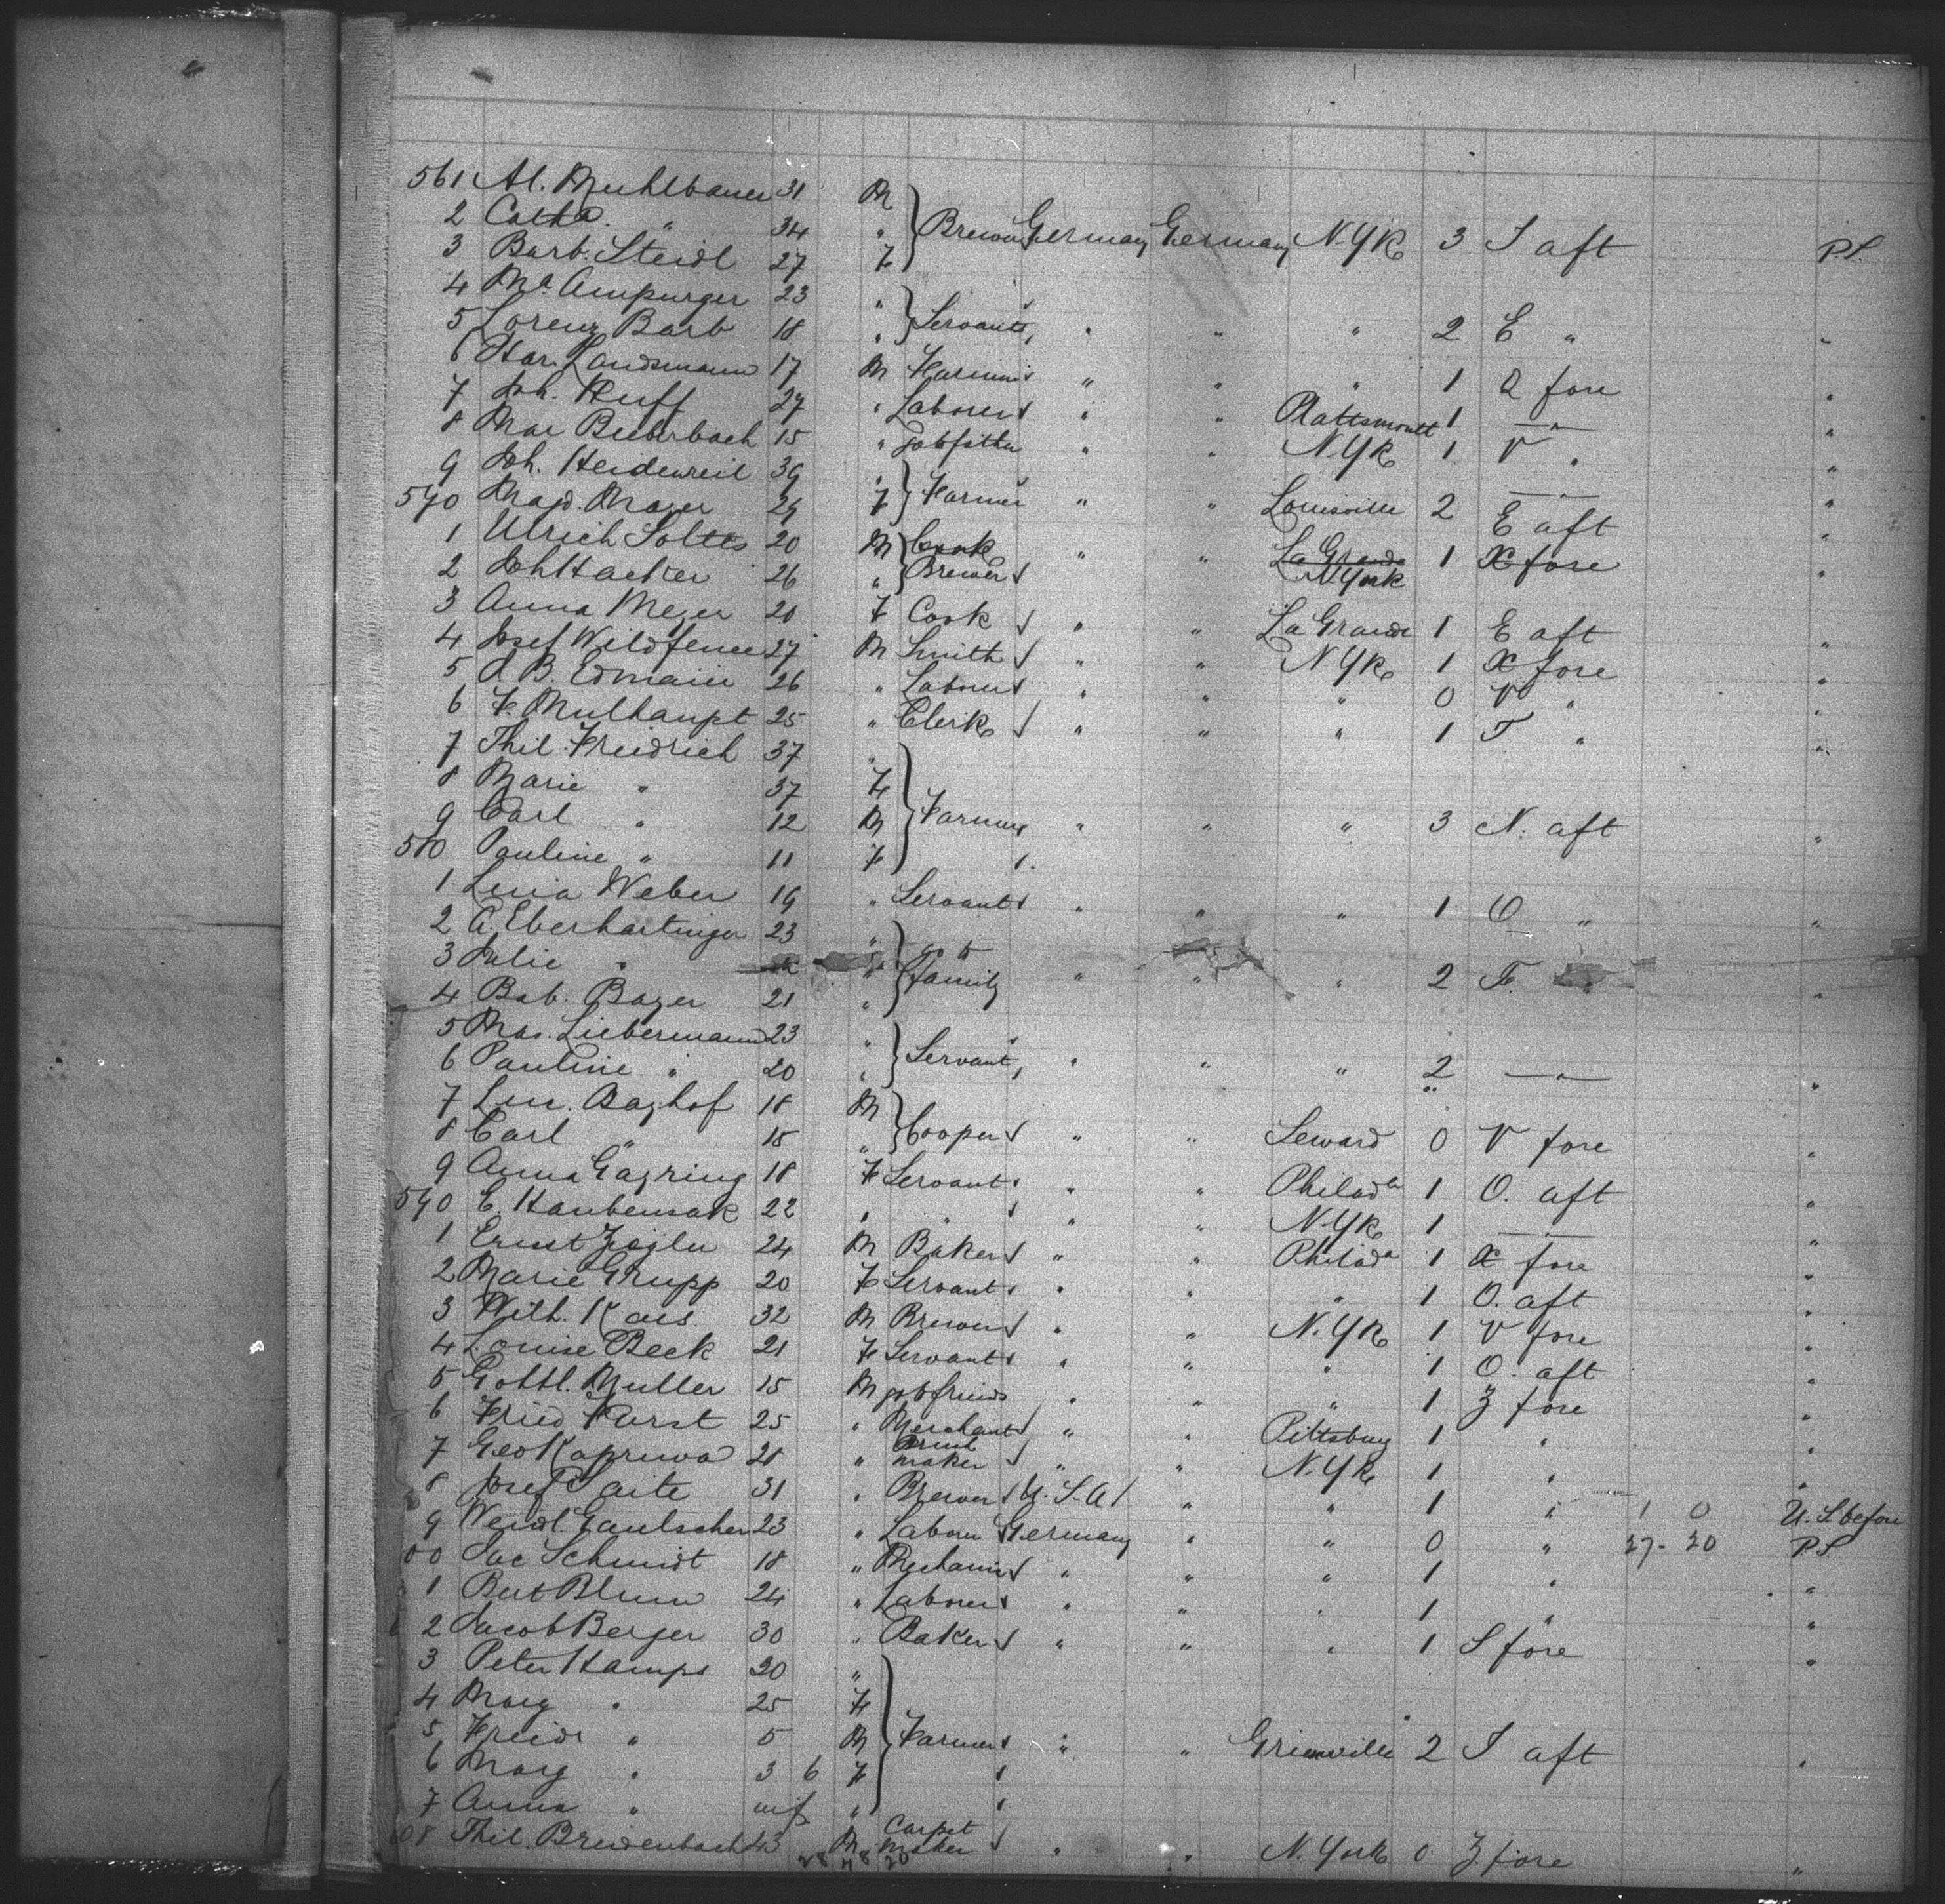 561 Al. Muhlbauer 31 M
2 Cath. " 34 " } Brewer Germany Germany N.Yk 3 I aft P.S.
3 Barb. Steidl 27 F
4 Ma Ampurger 23 "
5 Lorenz Barb 18 " } Servants " " " 2 E " "
6 Landsmann 17 M " " " 1 Q fore "
7 Joh. Huff 27 " Laborer " " Plattsmouth 1 — " — "
8 Max Bieberbach 15 " " " N.Yk 1 V " "
9 Joh. Heidenreil 39 " } Farmer " " Louisville 2 — " — "
570 Magd. Mayer 29 F E aft
1 Ulrich Soltes 20 M Cook " " La Grande 1 X fore "
2 Joh Hacker 26 " Brewer N York
3 Anna Meyer 20 F Cook " " La Grande 1 E aft "
4 Josef 27 M Smith " " N.Yk 1 X fore "
5 26 " Laborer " " " 0 V " "
6 F. Mulhaupt 25 " Clerk " " " 1 T " "
7 Phil. Freidrich 37 "
8 Marie " 37 F
9 Carl " 12 M } Farmer " " " 3 N. aft "
580 Pauline " 11 F
1 Weber 19 " Servant " " " 1 O " "
2 A. Eberhartinger 23 " go to
3 Julie " " } family " " " 2 F. " "
4 Bab. Bayer 21 "
5 Mar. Liebermann 23 "
6 Pauline " 20 " } Servant " " " 2 — " — "
7 Baghof 18 M
8 Carl " 15 " } Cooper " " Seward 0 V fore "
9 Anna Gagring 18 F Servant " " Philada 1 O. aft "
590 E. Haubensak 22 " " " " N.Yk 1 — " — "
1 Ernst 24 M Baker " " Philada 1 X fore "
2 Marie Grupp 20 F Servant " " " 1 O. aft "
3 Wilh. Kaes. 32 M Brewer " " N.Yk 1 V fore "
4 Louise Beck 21 F Servant " " " 1 O. aft "
5 Gottl. Muller 15 M " " " 1 Z fore "
6 Fried Furst 25 " Merchant " " Pittsburg 1 " "
7 Geo 28 " maker " " N.Yk 1 " "
8 Josef 31 " Brewer U.S.A " " 1 " 1 0 U.S. before
9 Wendl. Gaulscher 23 " Laborer Germany " " 0 " 27- 20 P.S
00 Jac Schmidt 18 " Mechanic " " " 1 " "
1 Blum 24 " Laborer " " " 1 " "
2 Jacob Berger 30 " Baker " " " 1 S fore "
3 Peter Hamps 20 "
4 Marg " 25 F
5 Freidr " 5 M } Farmer " " 2 I aft "
6 Marg " 3 6 F
7 Anna " inf "
608 Phil. Breidenbach 43 M Carpet maker " " N. York 0 Z fore "
28 20